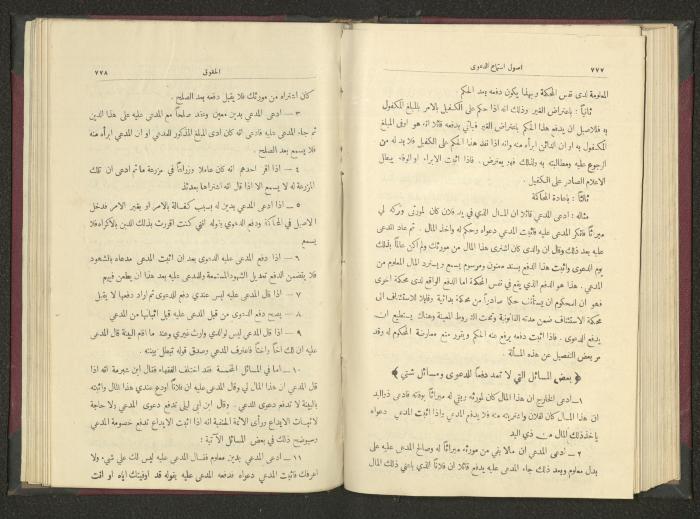 ٧٧٧ اصول استماع الدعوى
المعلومة لدى نفس المحكمة وبهذا يكون دفعه بعد الحكم.
ثانياً: باعتراض الغير وذلك انه اذا حكم على الكفيل بالامر بالمبلغ المكفول
به فللاصيل ان يدفع هذا الحكم باعتراض الغير فيأتي بدفعه قائلا انه هو اوفى المبلغ
المكفول به او ان الدائن ابرأه منه وانه اذا نفذ هذا الحكم على الكفيل فلا بد له من
الرجوع عليه ومطالبته به ولذلك فهو يعترض. فاذا اثبت الابراء او الوفاء يبطل
الاعلام الصادر على الكفيل.
ثالثاً: باعادة المحاكمة
مثاله: ادعى المدعي قائلا ان المال الذي في يد فلان كان لمورثي وتركه لي
ميراثاً فانكر المدعى عليه فاثبت المدعي دعواه وحكم له واخذ المال. ثم عاد المدعى
عليه بعد ذلك وقال ان والدي كان اشترى هذا المال من مورثك ولم اكن عالماً بذلك
يوم الدعوى واثبت هذا الدفع بسند ممنون ومرسوم يسمع ويسترد المال المعلوم من
المدعي. هذا هو الدفع الذي يقع في نفس المحكمة اما الدفع الواقع لدى محكمة اخرى
فهو ان المحكوم ان يستأنف حكما صادراً من محكمة بدائية وقابلا للاستئناف الى
محكمة الاستئناف ضمن مدته القانونية وتحت الشروط المعينة وهناك يستطيع ان
يدفع الدعوى. فاذا اثبت دفعه يرفع عنه الحكم ويتقرر منع معارضة المحكوم له وقد
مر بعض التفصيل عن هذه المسألة.
﴿ بعض المسائل التي لا تعد دفعاً للدعوى ومسائل شتى ﴾
١ــ ادعى الخارج ان هذا المال كان لمورثه وبقي له ميراثاً بوفاته فادعى ذو اليد
ان هذا المال كان لفلان واشتريته منه فلا يدفع المدعي واذا اثبت المدعي دعواه
ياخذ ذلك المال من ذي اليد
٢ ــ ادعى المدعي ان مالا بقي من مورثه ميراثاً له وصالح المدعى عليه على
بدل معلوم وبعد ذلك جاء المدعى عليه يدفع قائلا ان فلاناً الذي يدعي ذلك المال
الحقوق ٧٧٨
كان اشتراه من مورثك فلا يقبل دفعه بعد الصلح.
٣ ــ ادعى المدعي بدين معين وعقد صلحاً مع المدعى عليه على هذا الدين
ثم جاء المدعى عليه فادعى انه كان ادى المبلغ المذكور للمدعي او ان المدعي ابرأه منه
فلا يسمع بعد الصلح.
٤ ــ اذا اقر احدهم انه كان عاملا وزراعاً في مزرعة ما ثم ادعى ان تلك
المزرعة له لا يسمع الا اذا قال انه اشتراها بعدئذ
٥ ــ اذا ادعى المدعي بدين له بسبب كفالة بالامر او بغير الامر فدخل
الاصيل في المحاكمة ودفع الدعوى بقوله انني كنت اقررت بذلك الدين بالاكراه فلا
يسمع
٦ ــ اذا دفع المدعى عليه الدعوى بعد ان اثبت المدعي مدعاه بالشهود
فلا يتضمن الدفع تعديل الشهود المستمعة وللمدعى عليه بعد هذا ان يطعن فيهم
٧ ــ اذا قال المدعى عليه ليس عندي دفع للدعوى ثم اراد دفعها لا يقبل
٨ ــ يصح دفع الدعوى من قبل المدعى عليه قبل اثباتها من المدعي
٩ ــ اذا قال المدعي ليس لوالدي وارث غيري وعند ما اقام البينة قال المدعى
عليه ان لك اخاً واختاً فاعترف المدعي وصدق قوله تبطل بينته.
١٠ ــ اما في المسائل الخمسة فقد اختلف الفقهاء فقال ابن شبرمة انه اذا
قال المدعي ان هذا المال لي وقال المدعى عليه ان فلاناً اودع عندي هذا المال واثبته
بالبينة لا تدفع دعوى المدعي. وقال ابن ابي ليلى تدفع دعوى المدعي ولا حاجة
لاثبات الايداع ورأى الائمة الحنفية انه اذا اثبت الايداع تندفع خصومة المدعي
وسيوضح ذلك في بعض المسائل الآتية:
١١ ــ ادعى المدعي بدين معلوم فقال المدعى عليه ليس لك علي شيء ولا
اعرفك فاثبت المدعي دعواه فدفعه المدعى عليه بقوله قد اوفيتك اياه او انت